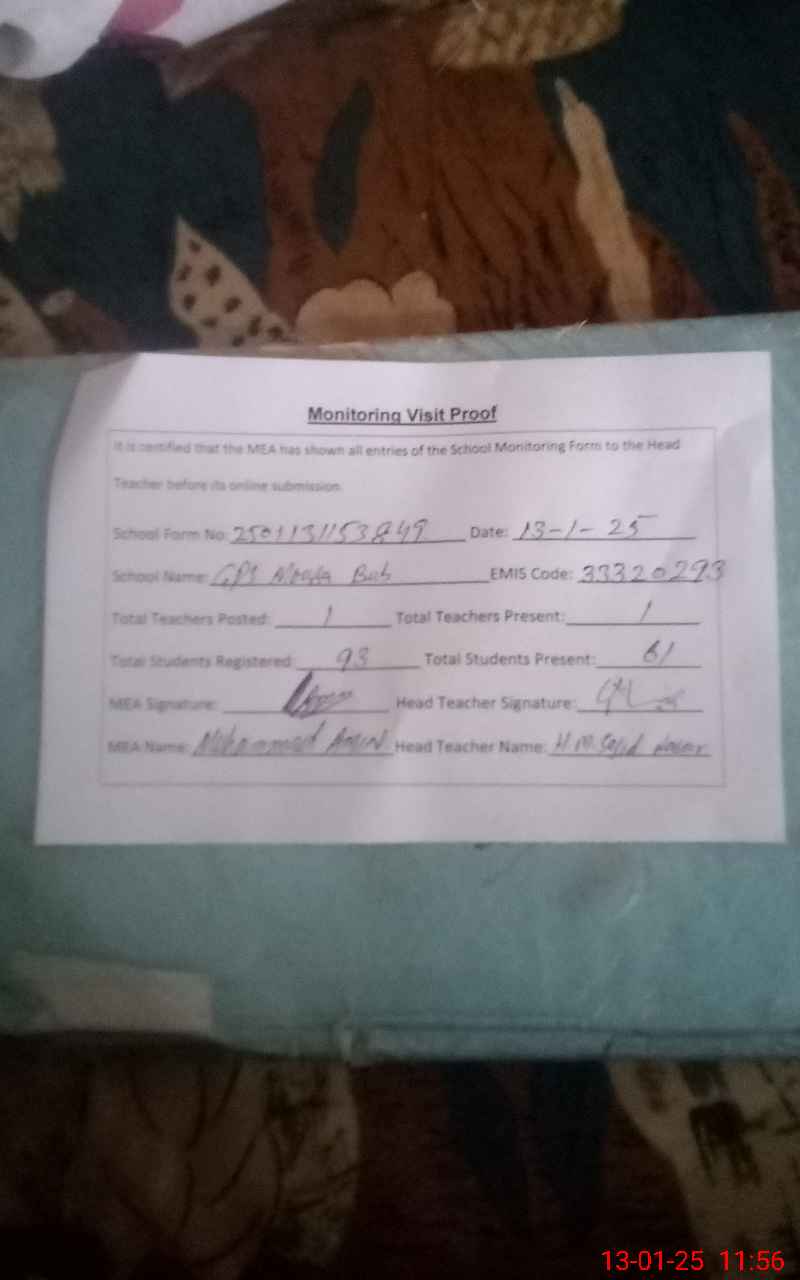 Monitoring Visit Proof
It is certified that the MEA has shown all entries of the School Monitoring Form to the Head
Teacher before its online submission.
School Form No: 2501131153849 Date: 13-1-25
School Name: GPS Bub EMIS Code: 33320293
Total Teachers Posted: 1 Total Teachers Present: 1
Total Students Registered: 93 Total Students Present: 61
MEA Signature: Head Teacher Signature:
MEA Name: Muhammad Amin Head Teacher Name: H.M. Sajid
13-01-25 11:56